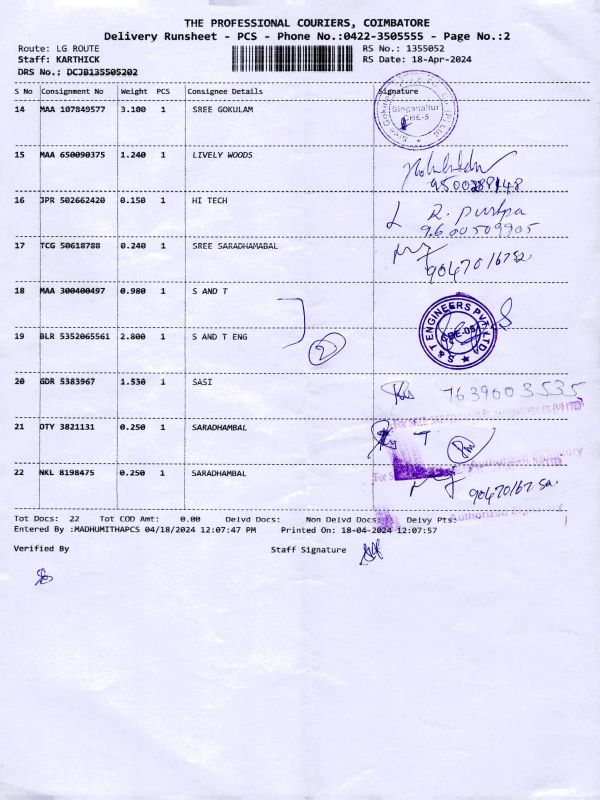 THE PROFESSIONAL COURIERS, COIMBATORE
Delivery Runsheet - PCS - Phone No.:0422-3505555 - Page No.:2
Route: LG ROUTE RS No.: 1355052
Staff: KARTHICK RS Date: 18-Apr-2024
DRS No.: DCJB135505202
S No Consignment No Weight PCS Consignee Details Signature
14 MAA 107849577 3.100 1 SREE GOKULAM
Singanallur
CBE-5
15 MAA 650090375 1.240 1 LIVELY WOODS
16 JPR 502662420 0.150 1 HI TECH
R. pushpa
9600509905
17 TCG 50618788 0.240 1 SREE SARADHAMABAL
18 MAA 300400497 0.980 1 S AND T
S & T ENGINEERS PVT LTD
CBE-05
19 BLR 5352065561 2.800 1 S AND T ENG
2
20 GDR 5383967 1.530 1 SASI
7639003535
21 OTY 3821131 0.250 1 SARADHAMBAL
22 NKL 8198475 0.250 1 SARADHAMBAL
Tot Docs: 22 Tot COD Amt: 0.00 Delvd Docs: Non Delvd Docs: Delvy Pts:
Entered By :MADHUMITHAPCS 04/18/2024 12:07:47 PM Printed On: 18-04-2024 12:07:57
Verified By Staff Signature